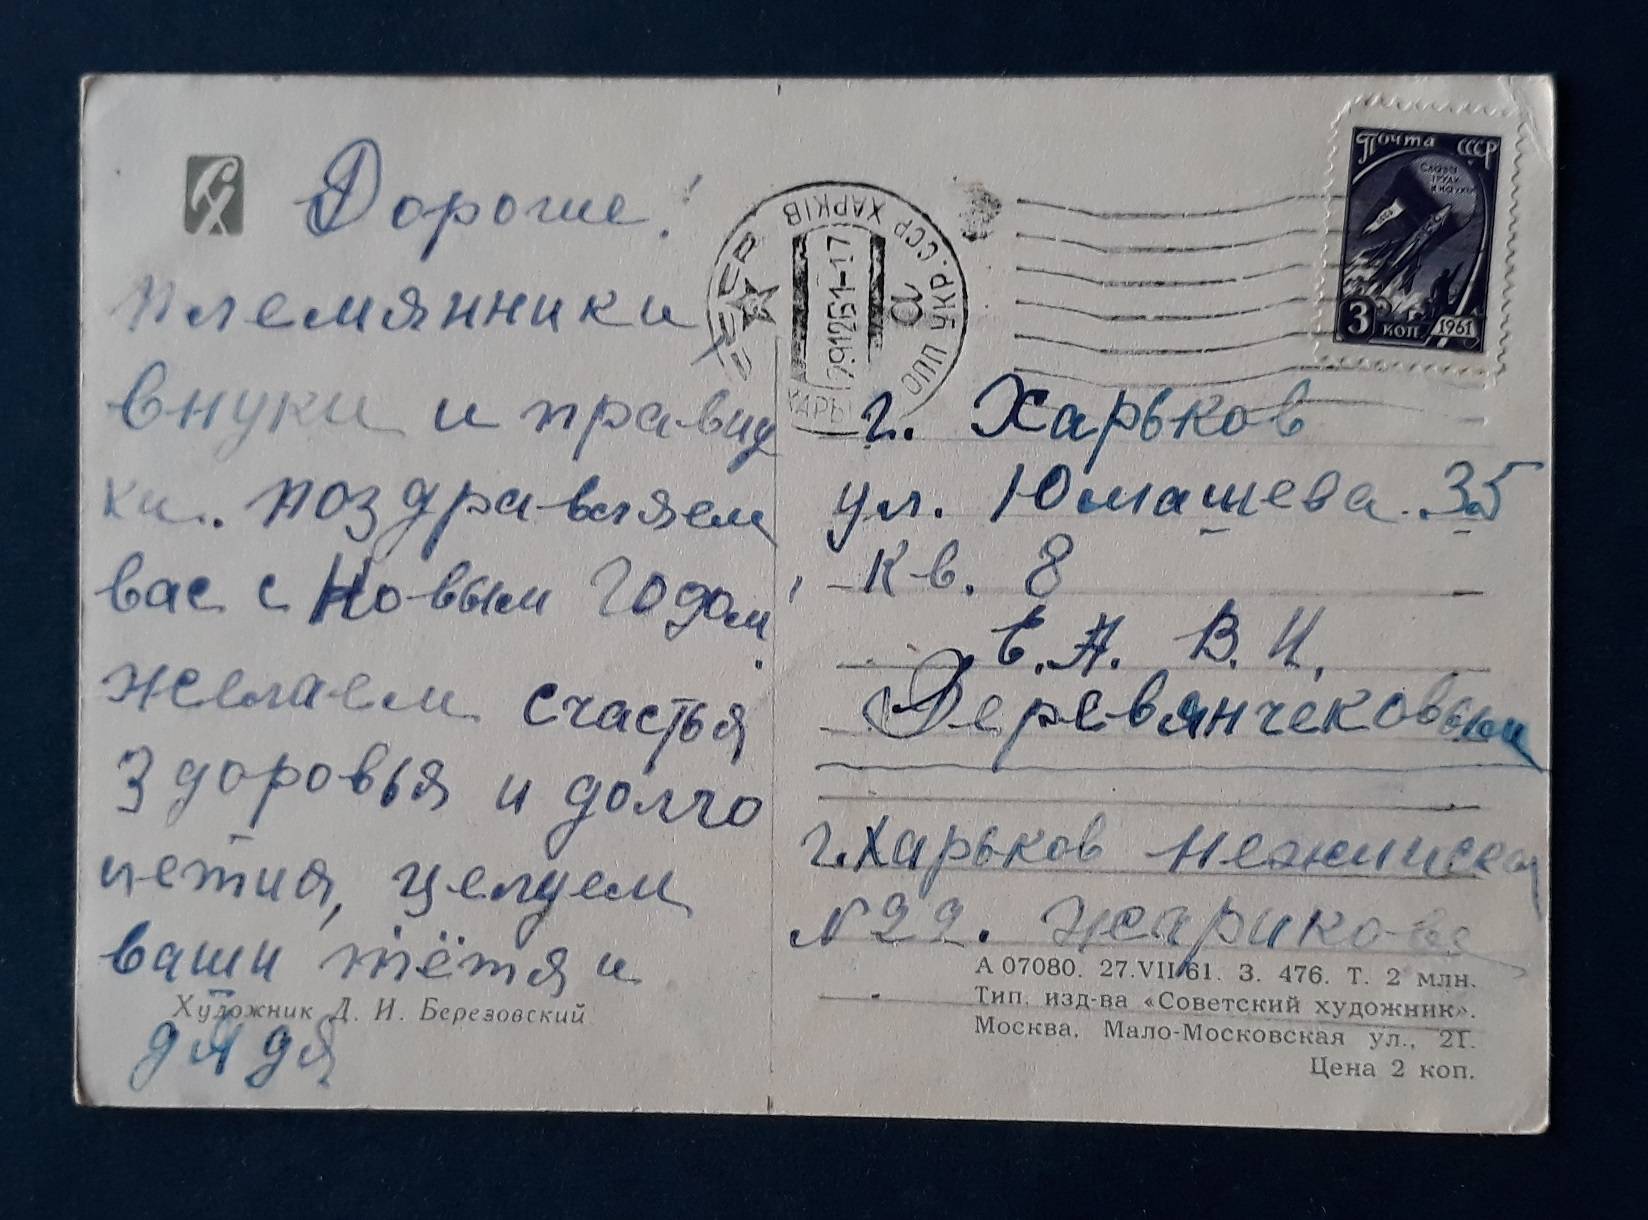 Дорогие!
племянники
внуки и правну
ки. поздравляем
вас с Новым годом!
желаем счастья
здоровья и долго
летия, целуем
ваши тётя и
дядя
Художник Д. И. Березовский
СССР
ХАРКІВ
УКР. ССР
ОПП
а
291261-17
ХАРЬ
Почта СССР
Слава
труду
и науке
СССР
3 коп 1961
г. Харьков
ул. Юмашева. 35
кв. 8
Е. А. В. И.
Деревянчековым
г. Харьков Нежинская
№ 22. Жарикова
А 07080. 27.VII 61. З. 476. Т. 2 млн.
Тип. изд-ва «Советский художник».
Москва, Мало-Московская ул., 21.
Цена 2 коп.